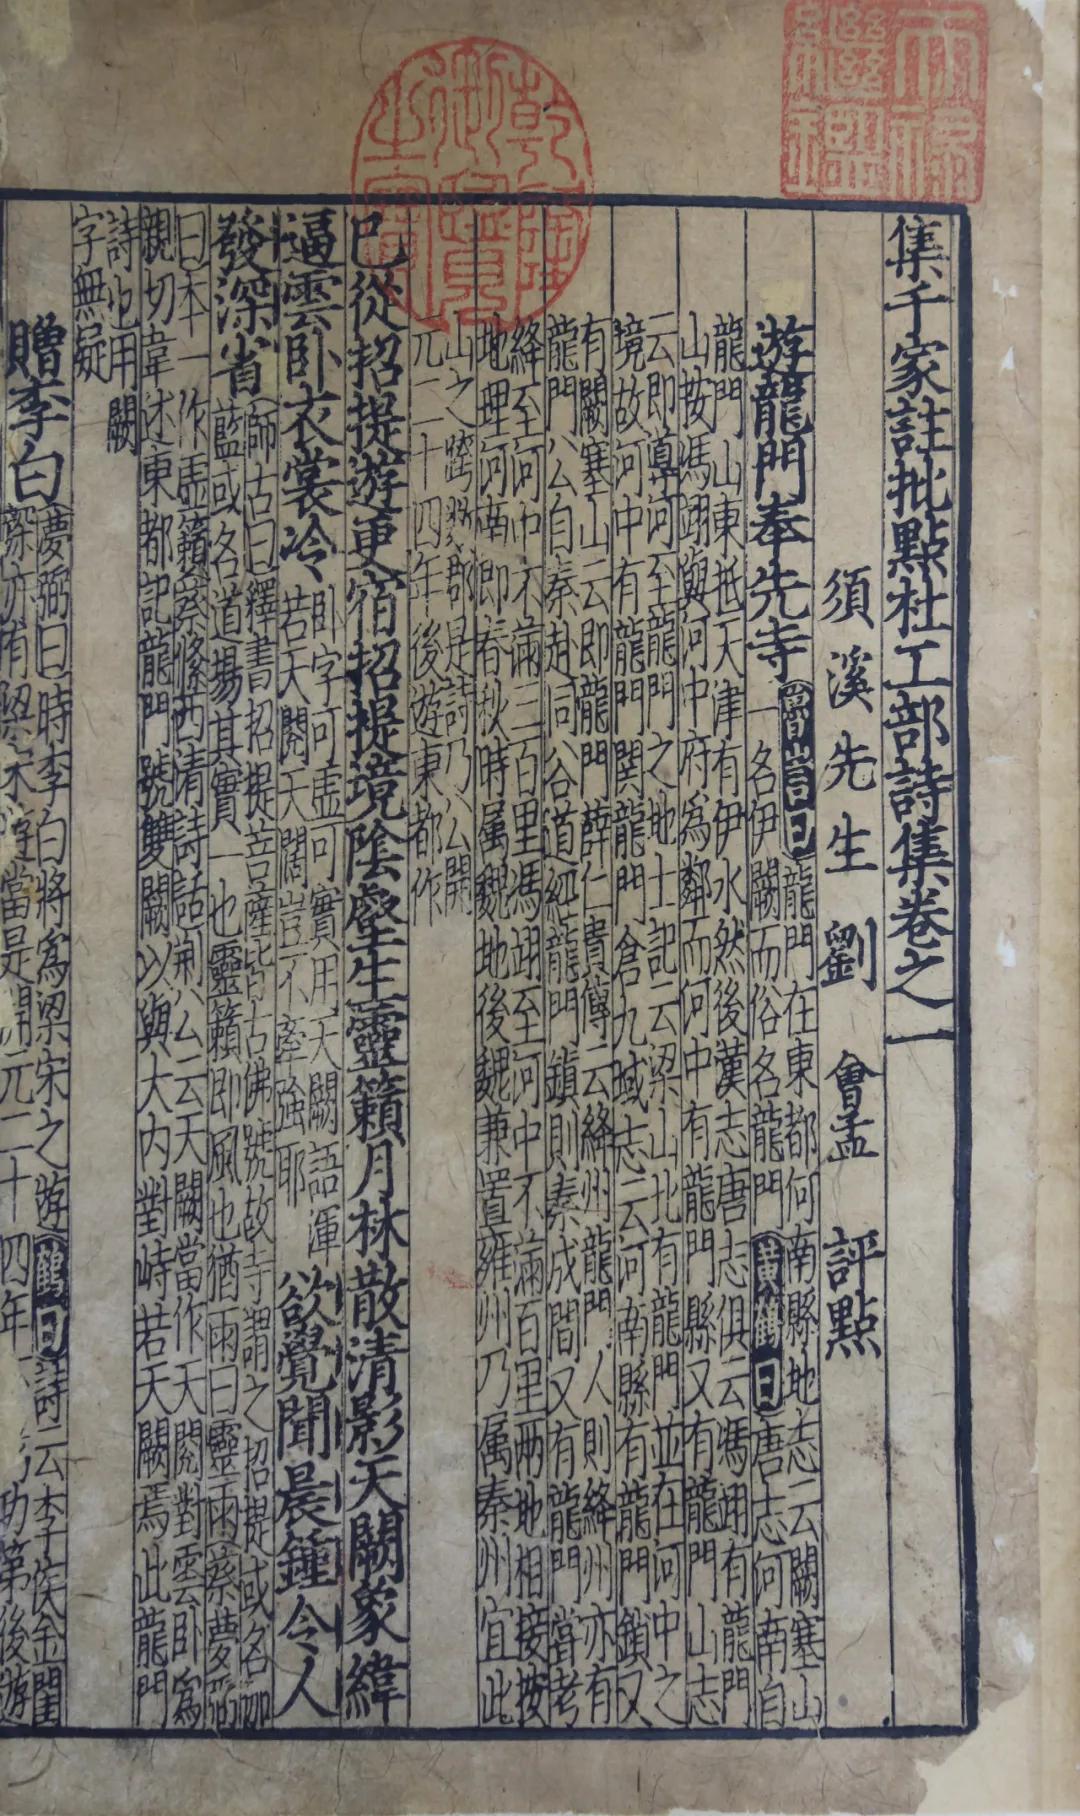 集千家註批點杜工部詩集卷之一
須溪先生劉會孟評點
遊龍門奉先寺
魯訔曰龍門在東都河南縣地志云闕塞山
一名伊闕而俗名龍門黃鶴曰唐志河南自
龍門山東抵天津有伊水然後漢志唐志俱云馮翊有龍門
山按馮翊與河中府為鄰而河中有龍門縣又有龍門山志
云即導河至龍門之地士記云梁山北有龍門並在河中之
境故河中有龍門関龍門倉九域志云河南縣有龍門鎖又
有闕塞山云即龍門薛仁貴傳云絳州龍門人則絳州亦有
龍門公自秦赴同谷道經龍門鎮則秦成間又有龍門當考
絳至河中不滿三百里馮翊至河中不滿百里兩地相接按
地理河南即春秋時属魏地後魏兼置雍州乃属秦州宜此
山之跨数郡是詩乃公開
元二十四年後遊東都作
已從招提遊更宿招提境陰壑生靈籟月林散清影天闕象緯
逼雲卧衣裳冷
卧字可虚可實用天闕語渾
若天閱天闊豈不牽強耶
欲覺聞晨鐘令人
發深省
師古曰釋書招提菩薩皆古佛號故寺謂之招提或名伽
藍或名道場其實一也靈籟即風也猶雨曰靈雨蔡夢弼
曰本一作虚籟蔡絛西清詩話荊公云天闕當作天閱對雲卧為
親切韋述東都記龍門號雙闕以與大内對峙若天闕焉此龍門
詩也用闕
字無疑
贈李白
夢弼曰時李白將為梁宋之遊鶴曰詩云李侯金閨
彦亦有梁宋遊當是開元二十四年後遊